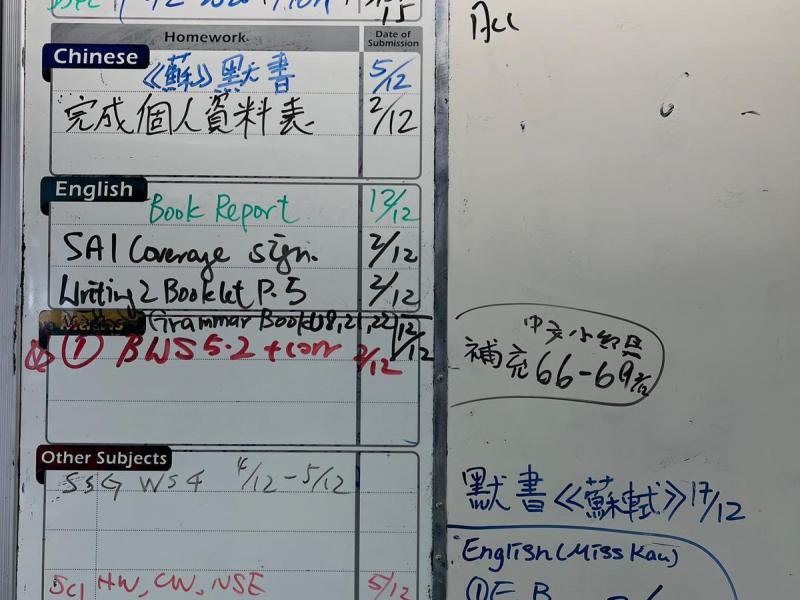 Homework
Date of Submission
Chinese
《蘇》默書 5/12
完成個人資料表 2/12
English
Book Report 12/12
SA1 Coverage sign. 2/12
Writing 2 Booklet P.5 2/12
Grammar Book 21, 22 12/12
① BWS 5.2 + corr 2/12
Other Subjects
SsG WS 4/12 - 5/12
HW, CW, NSE 5/12
補充 66-69
默書《蘇軾》17/12
English (Miss Kau)